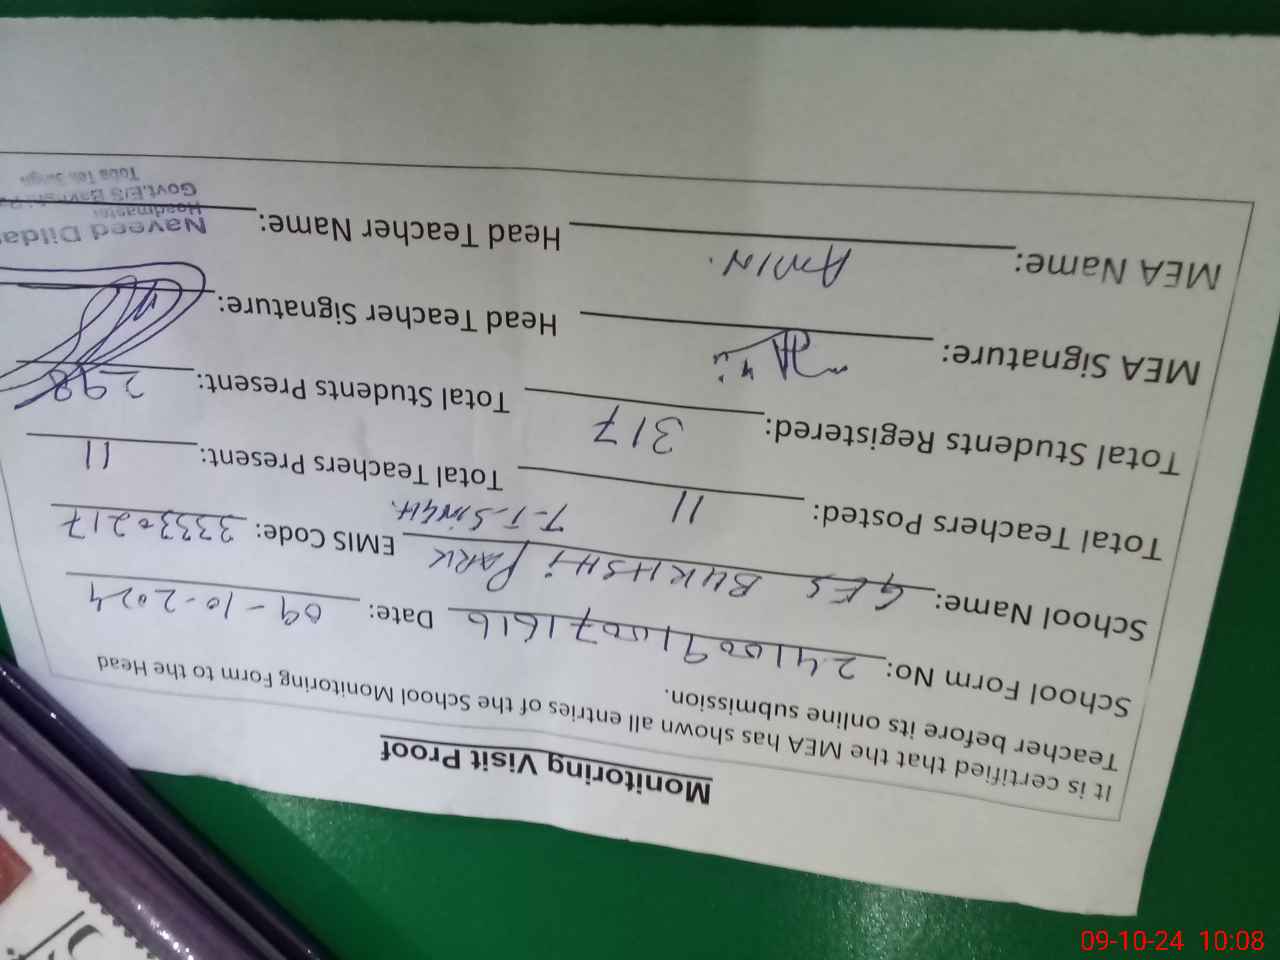 Monitoring Visit Proof
It is certified that the MEA has shown all entries of the School Monitoring Form to the Head
Teacher before its online submission.
School Form No: 24100911007 1616 Date: 09-10-2024
School Name: GES BUKHSHI PARK T-T-SINGH. EMIS Code: 33330217
Total Teachers Posted: 11 Total Teachers Present: 11
Total Students Registered: 317 Total Students Present: 298
MEA Signature: Head Teacher Signature:
MEA Name: AMIN. Head Teacher Name:
Naveed Dilda
Headmaster
Govt.E/S
Toba Tek Singh
09-10-24 10:08